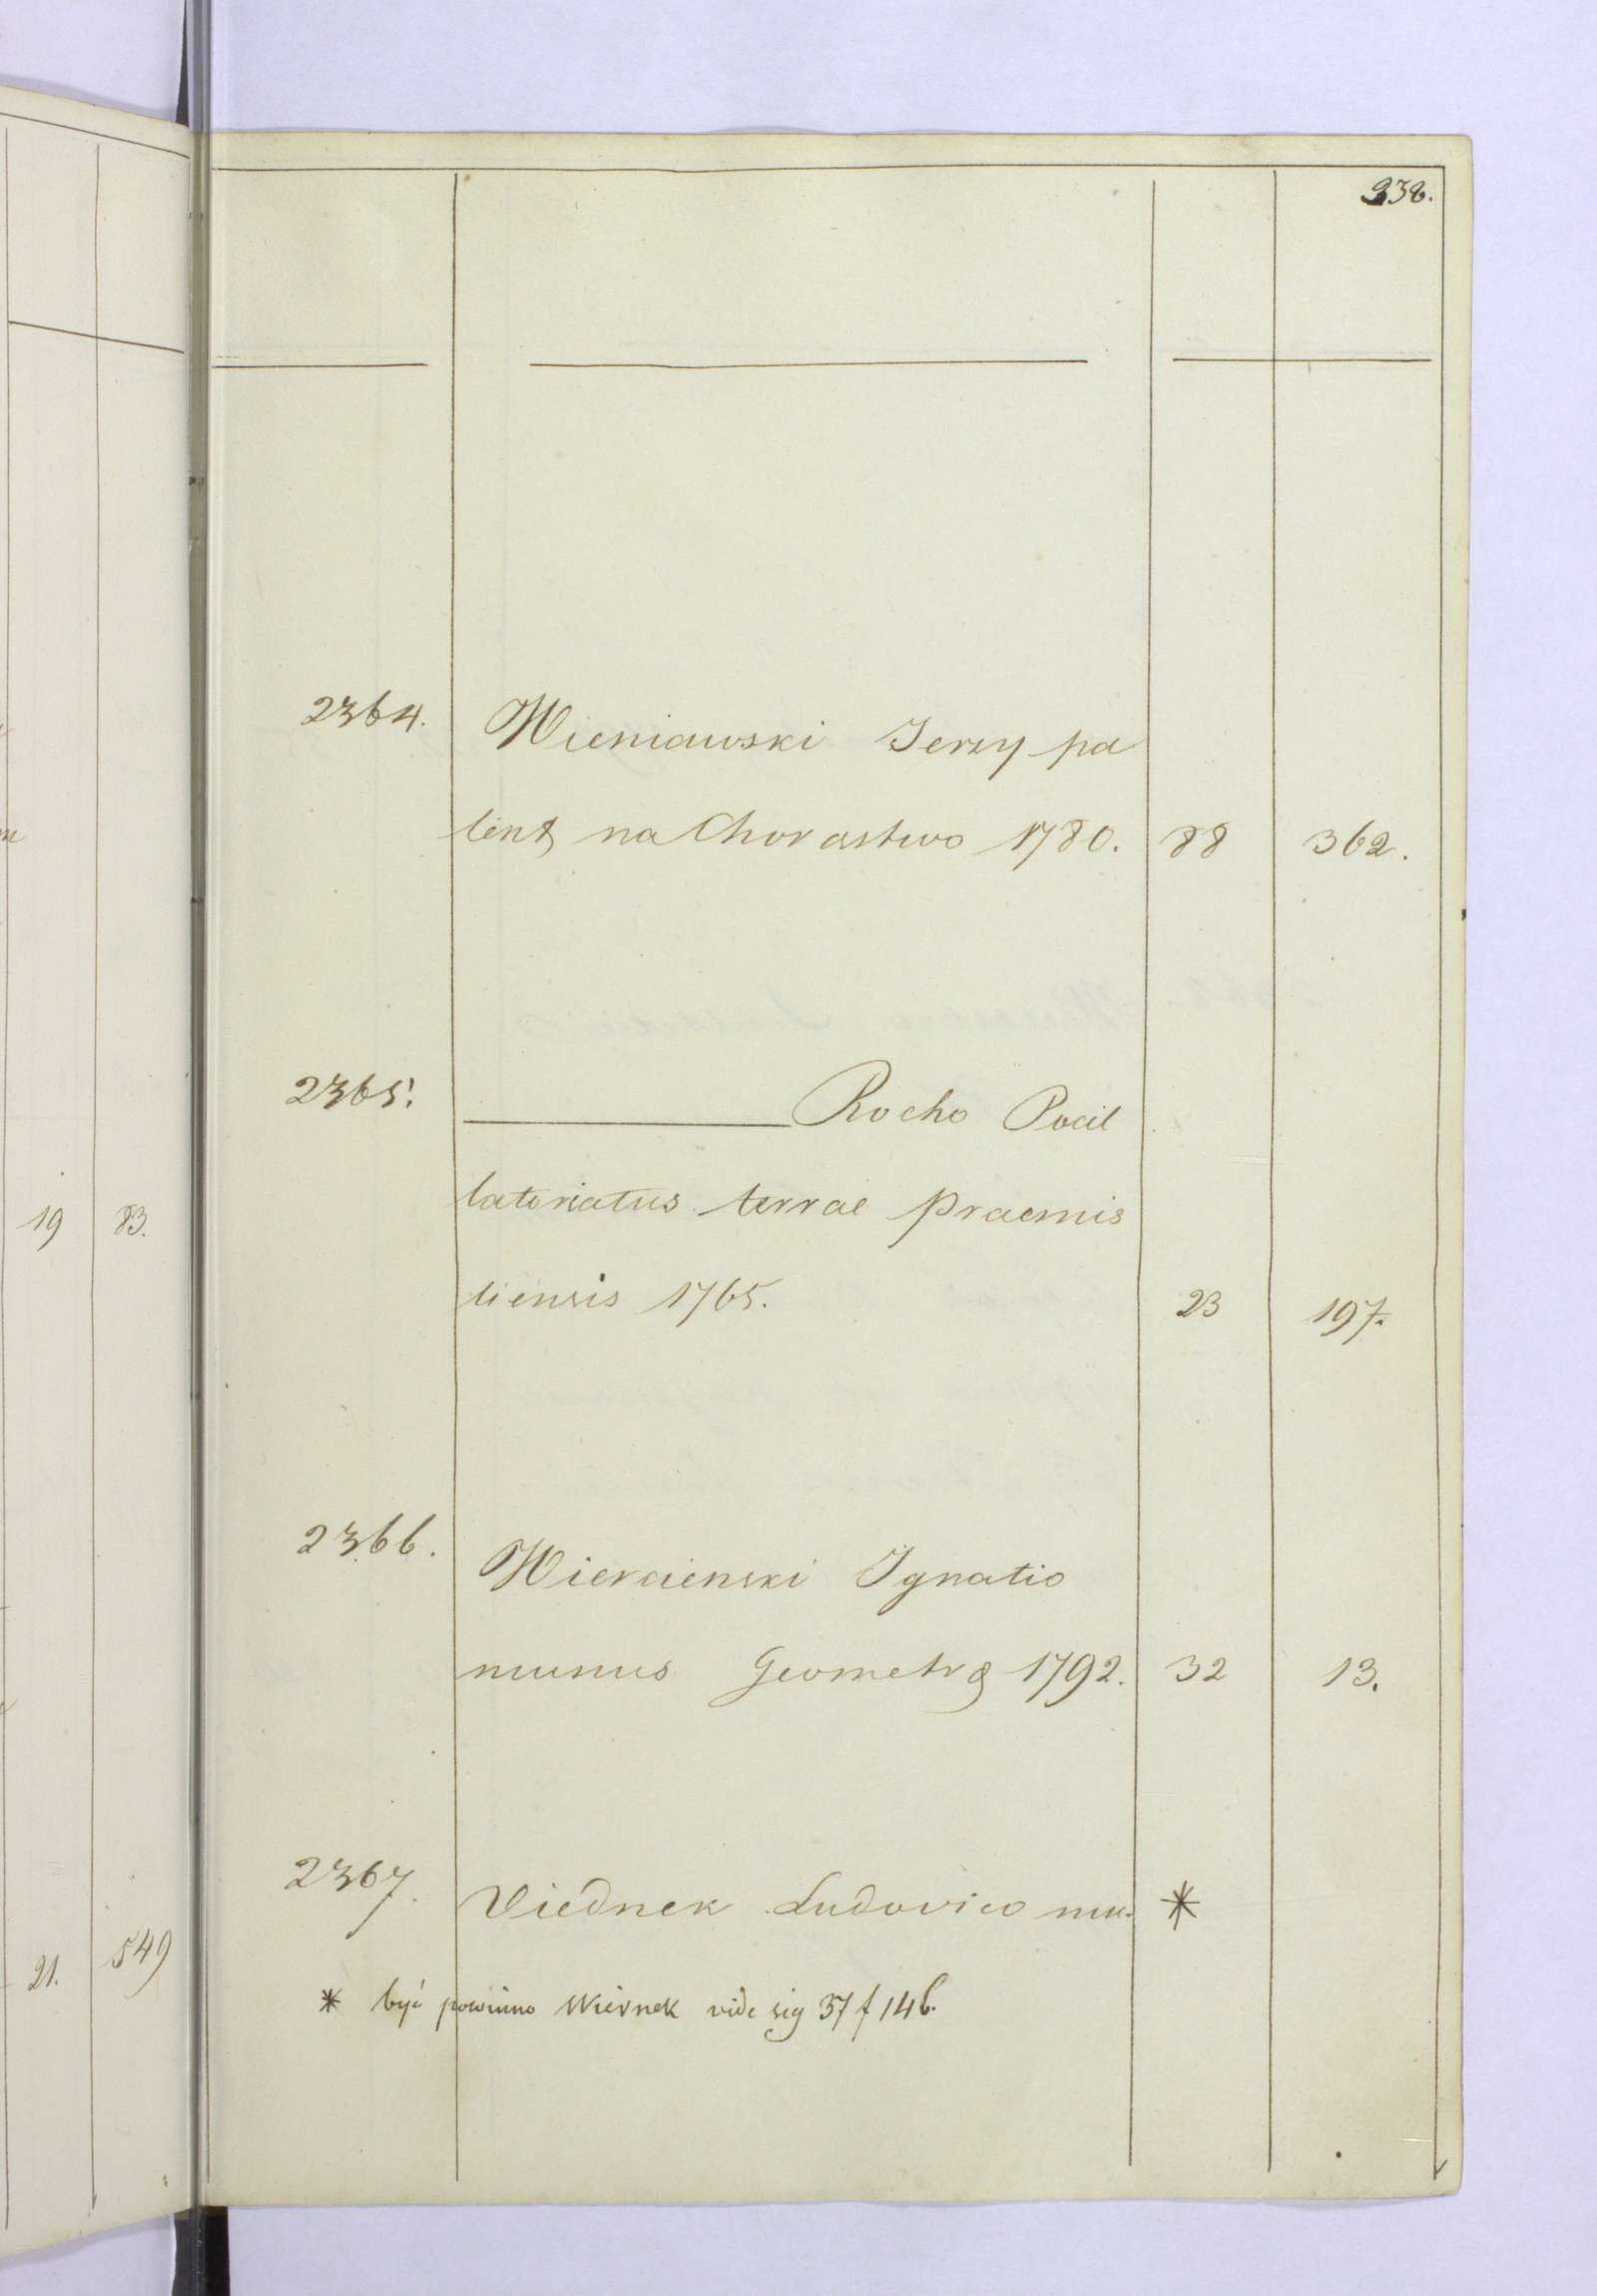 338.
2364. Wieniawski Jerzy pa
tent na Chorastwo 1780. 88 362.
2365. Rocho Pocil
latoriatus terrae Praemis
liensis 1765. 23 197.
2366. Wiercienski Ignatio
munus Geometrę 1792. 32 13.
2367. Viednek Ludovico mu. *
* być powinno Wiernek vide sig 37 f 146.
19 83.
21. 549